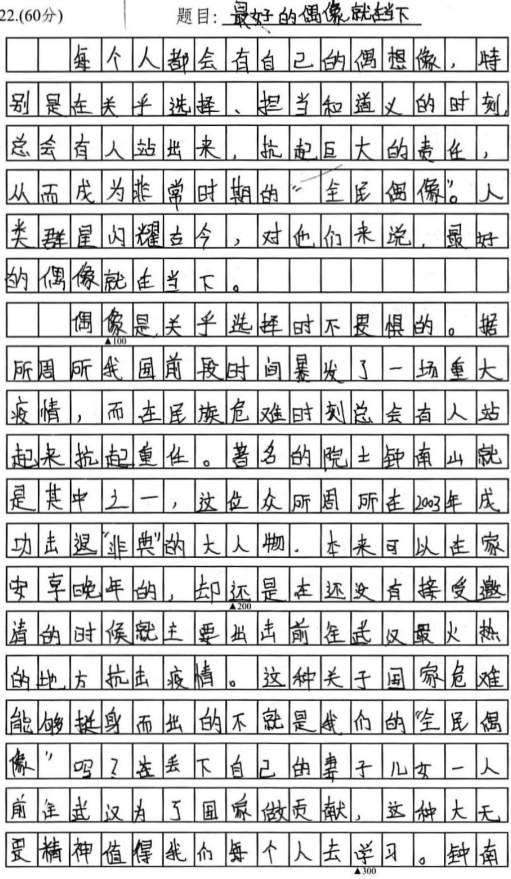 22.(60分) 题目: 最好的偶像就在当下
每个人都会有自己的偶想像，特
别是在关乎选择、担当和道义的时刻,
总会有人站出来，抗起巨大的责任，
从而成为非常时期的“全民偶像”。人
类群星闪耀古今，对他们来说，最好
的偶像就在当下。
偶像是关乎选择时不畏惧的。据
▲100
所周所我国前段时间暴发了一场重大
疫情，而在民族危难时刻总会有人站
起来抗起重任。著名的院士钟南山就
是其中之一，这位众所周所在2003年成
功击退“非典”的大人物．本来可以在家
安享晚年的，却还是在还没有接受邀
▲200
请的时候就主要出击前往武汉最火热
的地方抗击疫情。这种关于国家危难
能够挺身而出的不就是我们的“全民偶
像”吗？在丢下自己的妻子儿女一人
前往武汉为了国家做贡献，这种大无
畏精神值得我们每个人去学习。钟南
▲300